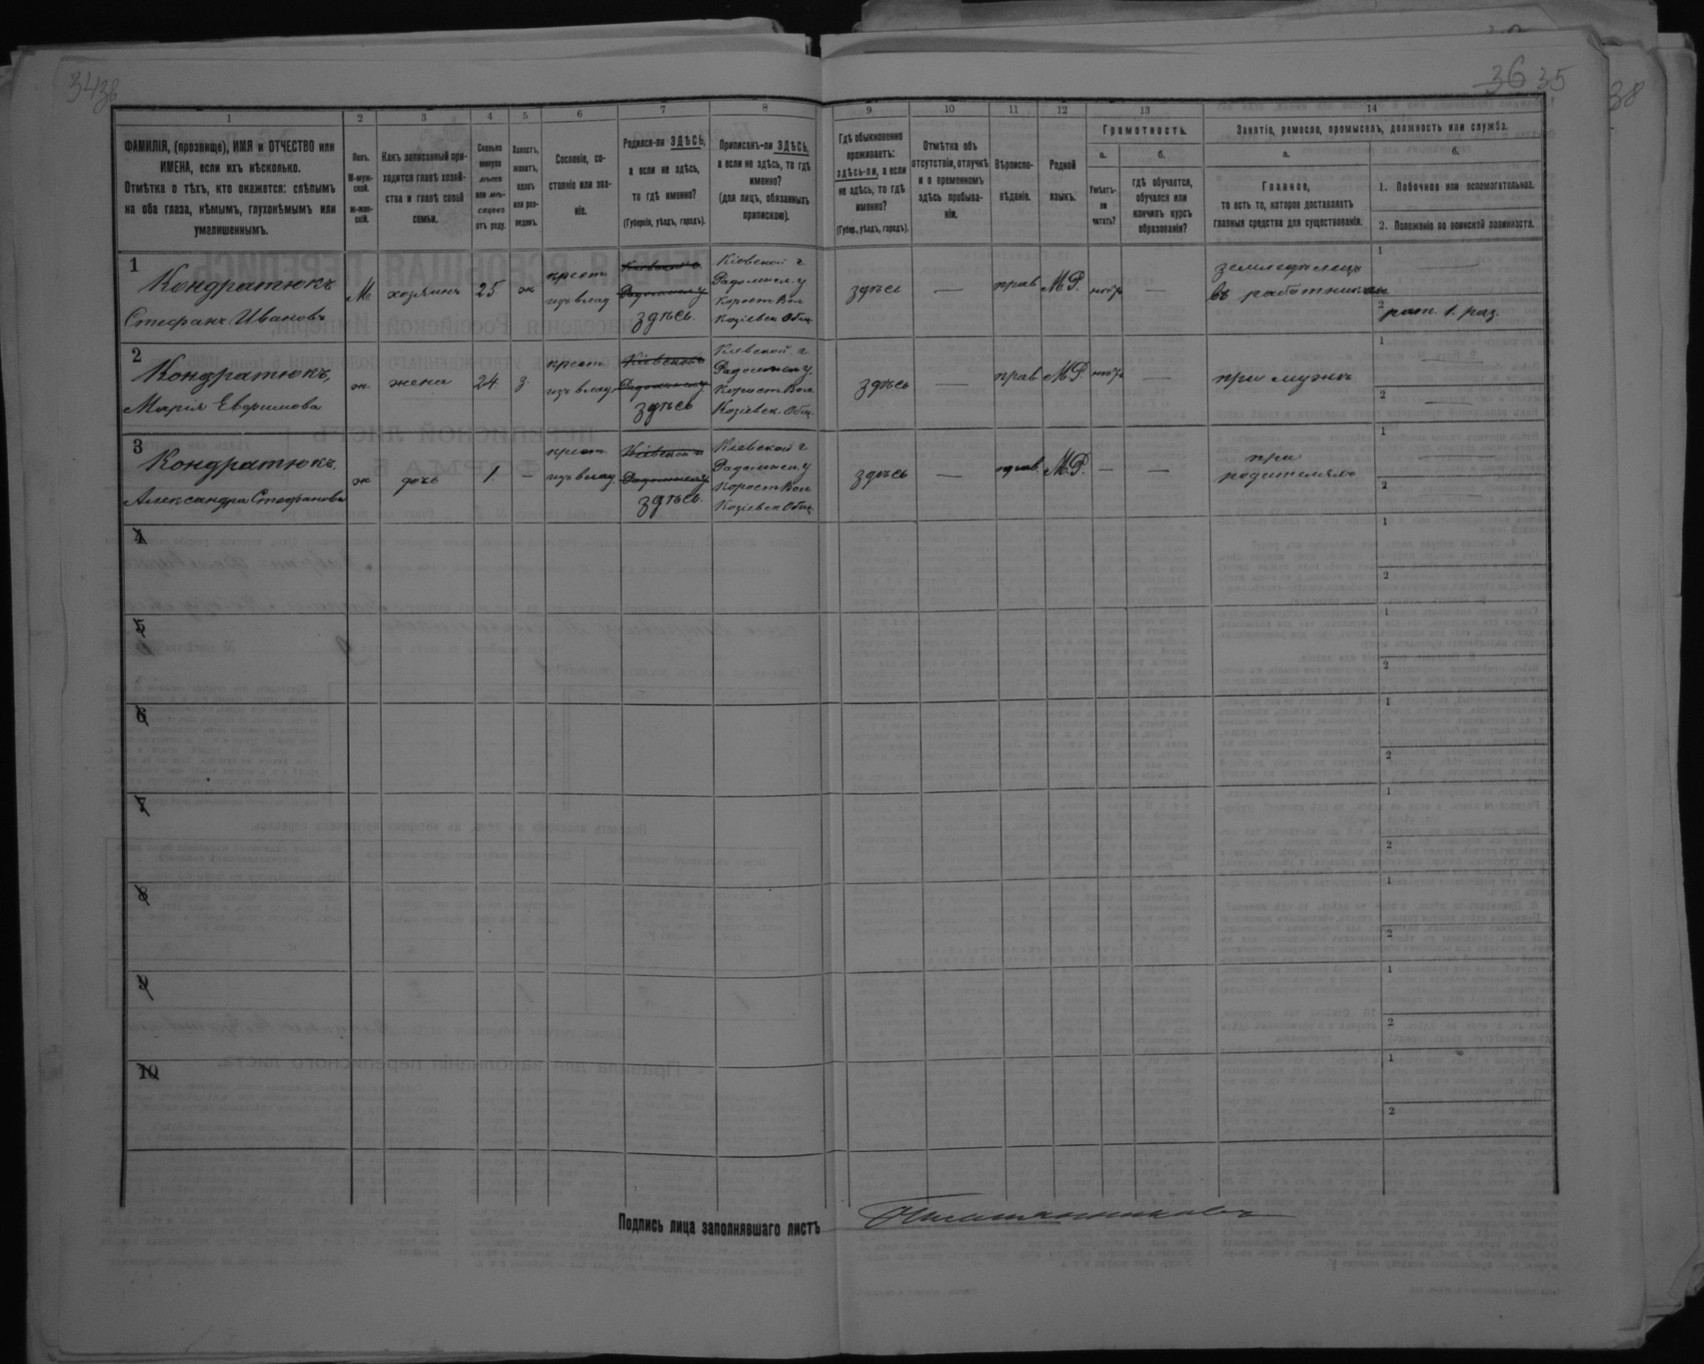 36 35
38
1
2
3
4
5
6
7
8
9
10
11
12
13
14
ФАМИЛІЯ, (прозвище), ИМЯ и ОТЧЕСТВО или
ИМЕНА, если ихъ нѣсколько.
Отмѣтка о тѣхъ, кто окажется: слѣпымъ
на оба глаза, нѣмымъ, глухонѣмымъ или
умалишеннымъ.
Полъ.
М-муж-
ской.
Ж-жен-
скій.
Какъ записанный при-
ходится главѣ хозяй-
ства и главѣ своей
семьи.
Сколько
минуло
лѣтъ
или мѣ-
сяцевъ
отъ роду.
Холостъ,
женатъ,
вдовъ
или раз-
веденъ.
Сословіе, со-
стояніе или зва-
ніе.
Родился-ли ЗДѢСЬ,
а если не здѣсь,
то гдѣ именно?
(Губернія, уѣздъ, городъ).
Приписанъ-ли ЗДѢСЬ,
а если не здѣсь, то гдѣ
именно?
(для лицъ, обязанныхъ
припискою).
Гдѣ обыкновенно
проживаетъ:
здѣсь-ли, а если
не здѣсь, то гдѣ
именно?
(Губер., уѣздъ, городъ).
Отмѣтка объ
отсутствіи, отлучкѣ
и о временномъ
здѣсь пребыва-
ніи.
Вѣроиспо-
вѣданіе.
Родной
языкъ.
Грамотность.
а.
Умѣетъ-
ли
читать?
б.
гдѣ обучается,
обучался или
кончилъ курсъ
образованія?
Занятіе, ремесло, промыселъ, должность или служба.
а.
Главное,
то есть то, которое доставляетъ
главныя средства для существованія.
б.
1. Побочное или вспомогательное.
2. Положеніе по воинской повинности.
1
Кондратюкъ
Стефанъ Ивановъ
М
хозяинъ
25
ж
крест
изъ влад
Кіевской
Радомыску
здѣсь.
Кіевской г
Радомыск. у
Корост Вол
Козіевск Общ
здѣсь
—
прав
М.Р.
нѣтъ
—
земледѣлецъ
въ работникахъ
1 —
2 рат. 1. раз.
2
Кондратюкъ,
Марія Евфимова
ж
жена
24
з
крест
изъ влад
Кіевской
Радомыску
здѣсь
Кіевской г
Радомыск у
Корост Вол
Козіевск. Общ
здѣсь
—
прав
М.Р.
нѣтъ
—
при мужѣ
1 —
2 —
3
Кондратюкъ,
Александра Стефанова
ж
дочь
1
—
крест
изъ влад
Кіевской
Радомыску
здѣсь.
Кіевской г
Радомыск у
Корост Вол
Козіевск Общ
здѣсь
—
прав.
М.Р.
—
—
при
родителяхъ
1 —
2 —
4
1
2
5
1
2
6
1
2
7
1
2
8
1
2
9
1
2
10
1
2
Подпись лица заполнявшаго листъ